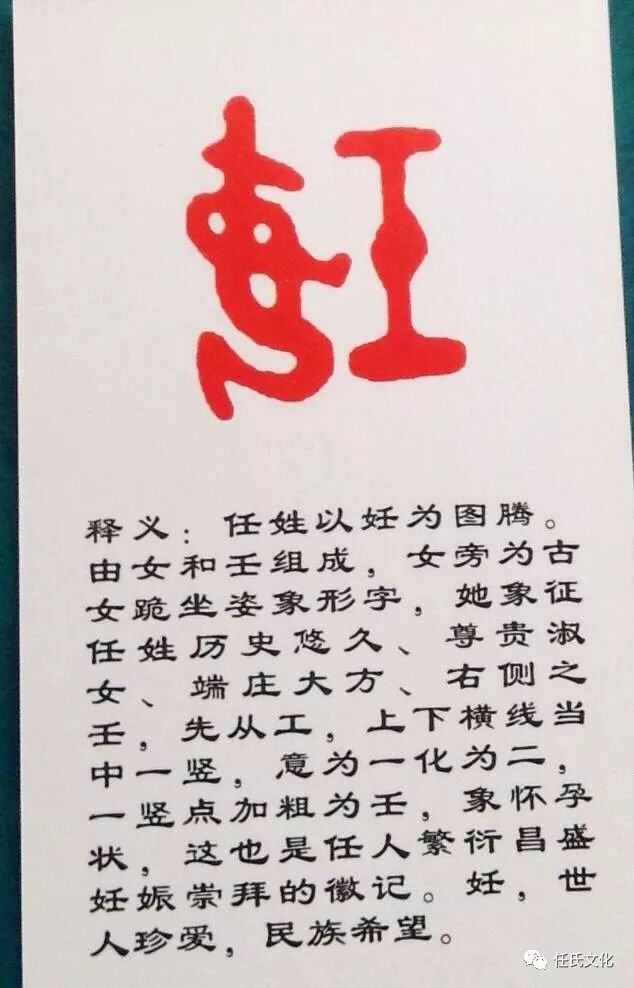 释义：任姓以妊为图腾。
由女和壬组成，女旁为古
女跪坐姿象形字，她象征
任姓历史悠久、尊贵淑
女、端庄大方、右侧之
壬，先从工，上下横线当
中一竖，意为一化为二，
一竖点加粗为壬，象怀孕
状，这也是任人繁衍昌盛
妊娠崇拜的徽记。妊，世
人珍爱，民族希望。
任氏文化